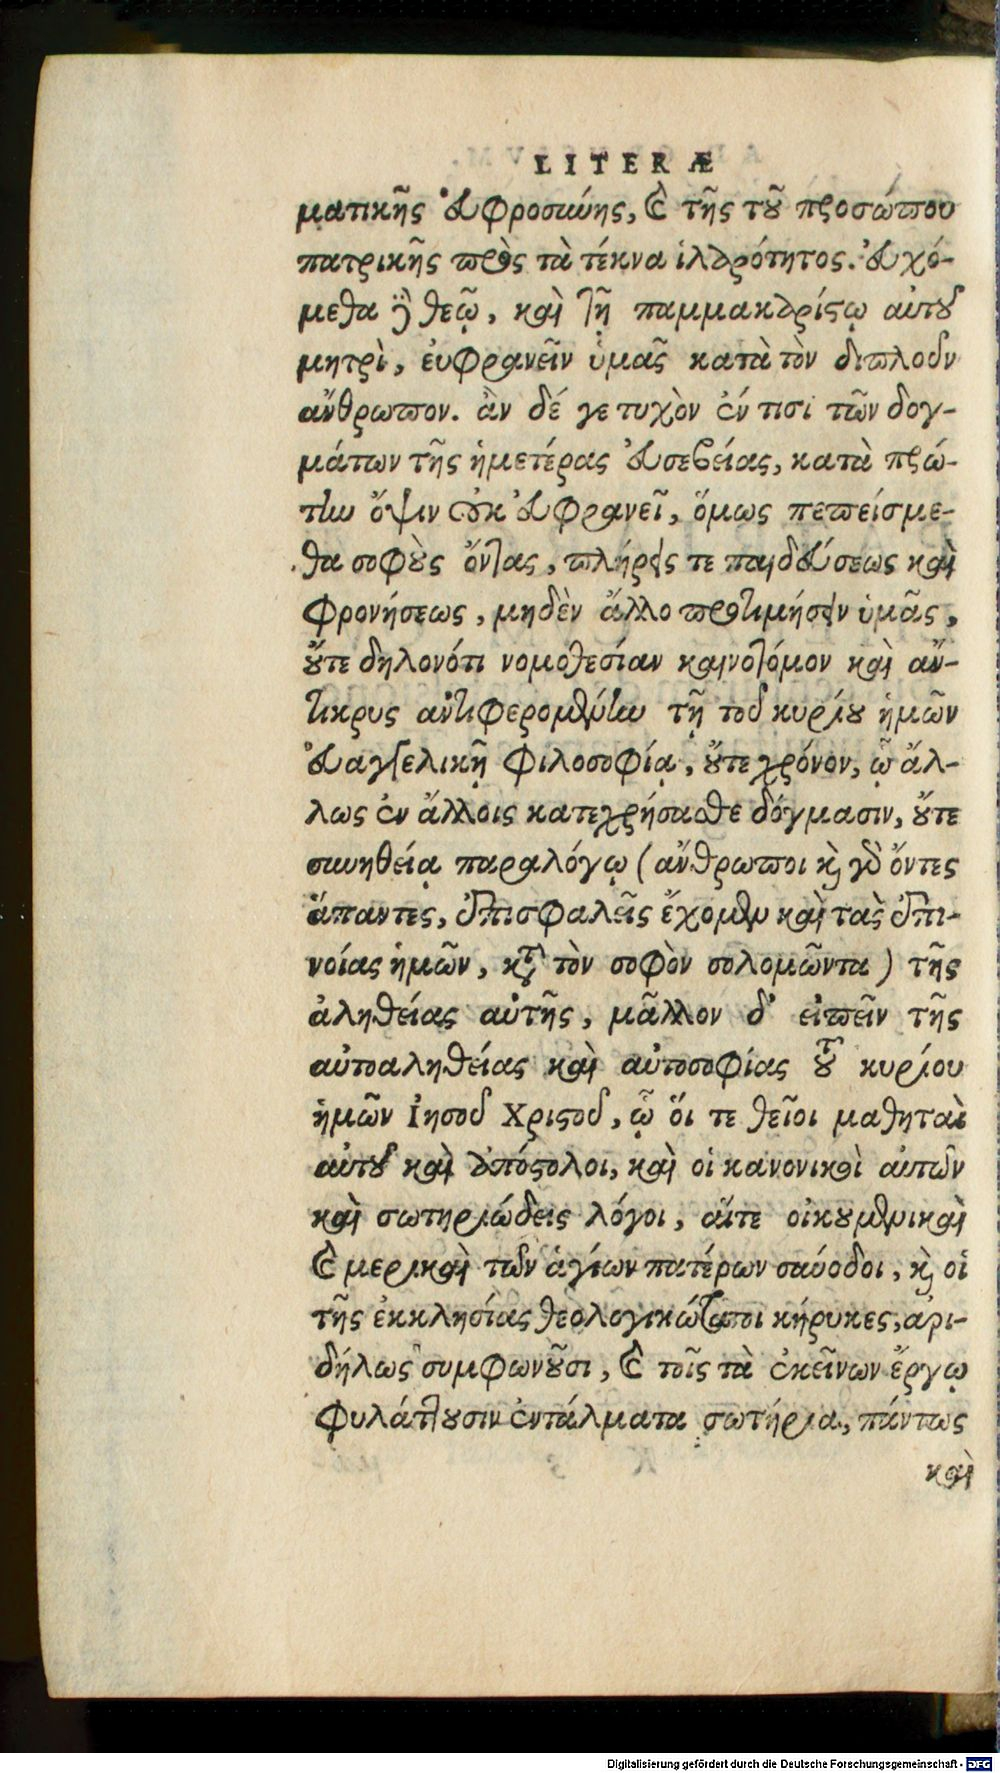 LITERÆ
ματικῆς εὐφροσύνης, καὶ τῆς τοῦ προσώπου
πατρικῆς πρὸς τὰ τέκνα ἱλαρότητος. εὐχό-
μεθα γὰρ θεῷ, καὶ τῇ παμμακαρίστῳ αὐτοῦ
μητρὶ, εὐφρανεῖν ὑμᾶς κατὰ τὸν διπλοῦν
ἄνθρωπον. ἂν δέ γε τυχὸν ἐν τισὶ τῶν δογ-
μάτων τῆς ἡμετέρας εὐσεβείας, κατὰ πρώ-
την ὄψιν οὐκ εὐφρανεῖ, ὅμως πεπείσμε-
θα σοφοὺς ὄντας, πλήρεις τε παιδεύσεως καὶ
φρονήσεως, μηδὲν ἄλλο προτιμήσειν ὑμᾶς,
οὔτε δηλονότι νομοθεσίαν καινοτόμον καὶ ἄν-
τικρυς ἀντιφερομένην τῇ τοῦ κυρίου ἡμῶν
εὐαγγελικῇ φιλοσοφίᾳ, οὔτε χρόνον, ᾧ ἄλ-
λως ἐν ἄλλοις κατεχρήσασθε δόγμασιν, οὔτε
συνηθείᾳ παραλόγῳ (ἄνθρωποι καὶ γὰρ ὄντες
ἅπαντες, ἐπισφαλεῖς ἔχομεν καὶ τὰς ἐπι-
νοίας ἡμῶν, κατὰ τὸν σοφὸν σολομῶντα) τῆς
ἀληθείας αὐτῆς, μᾶλλον δ' εἰπεῖν τῆς
αὐτοαληθείας καὶ αὐτοσοφίας τοῦ κυρίου
ἡμῶν Ἰησοῦ Χριστοῦ, ᾧ οἵ τε θεῖοι μαθηταὶ
αὐτοῦ καὶ ἀπόστολοι, καὶ οἱ κανονικοὶ αὐτῶν
καὶ σωτηριώδεις λόγοι, αἵτε οἰκουμενικαὶ
καὶ μερικαὶ τῶν ἁγίων πατέρων σύνοδοι, καὶ οἱ
τῆς ἐκκλησίας θεολογικώτατοι κήρυκες, ἀρι-
δήλως συμφωνοῦσι, καὶ τοῖς τὰ ἐκείνων ἔργῳ
φυλάττουσιν ἐντάλματα σωτήρια, πάντως
καὶ
Digitalisierung gefördert durch die Deutsche Forschungsgemeinschaft - DFG